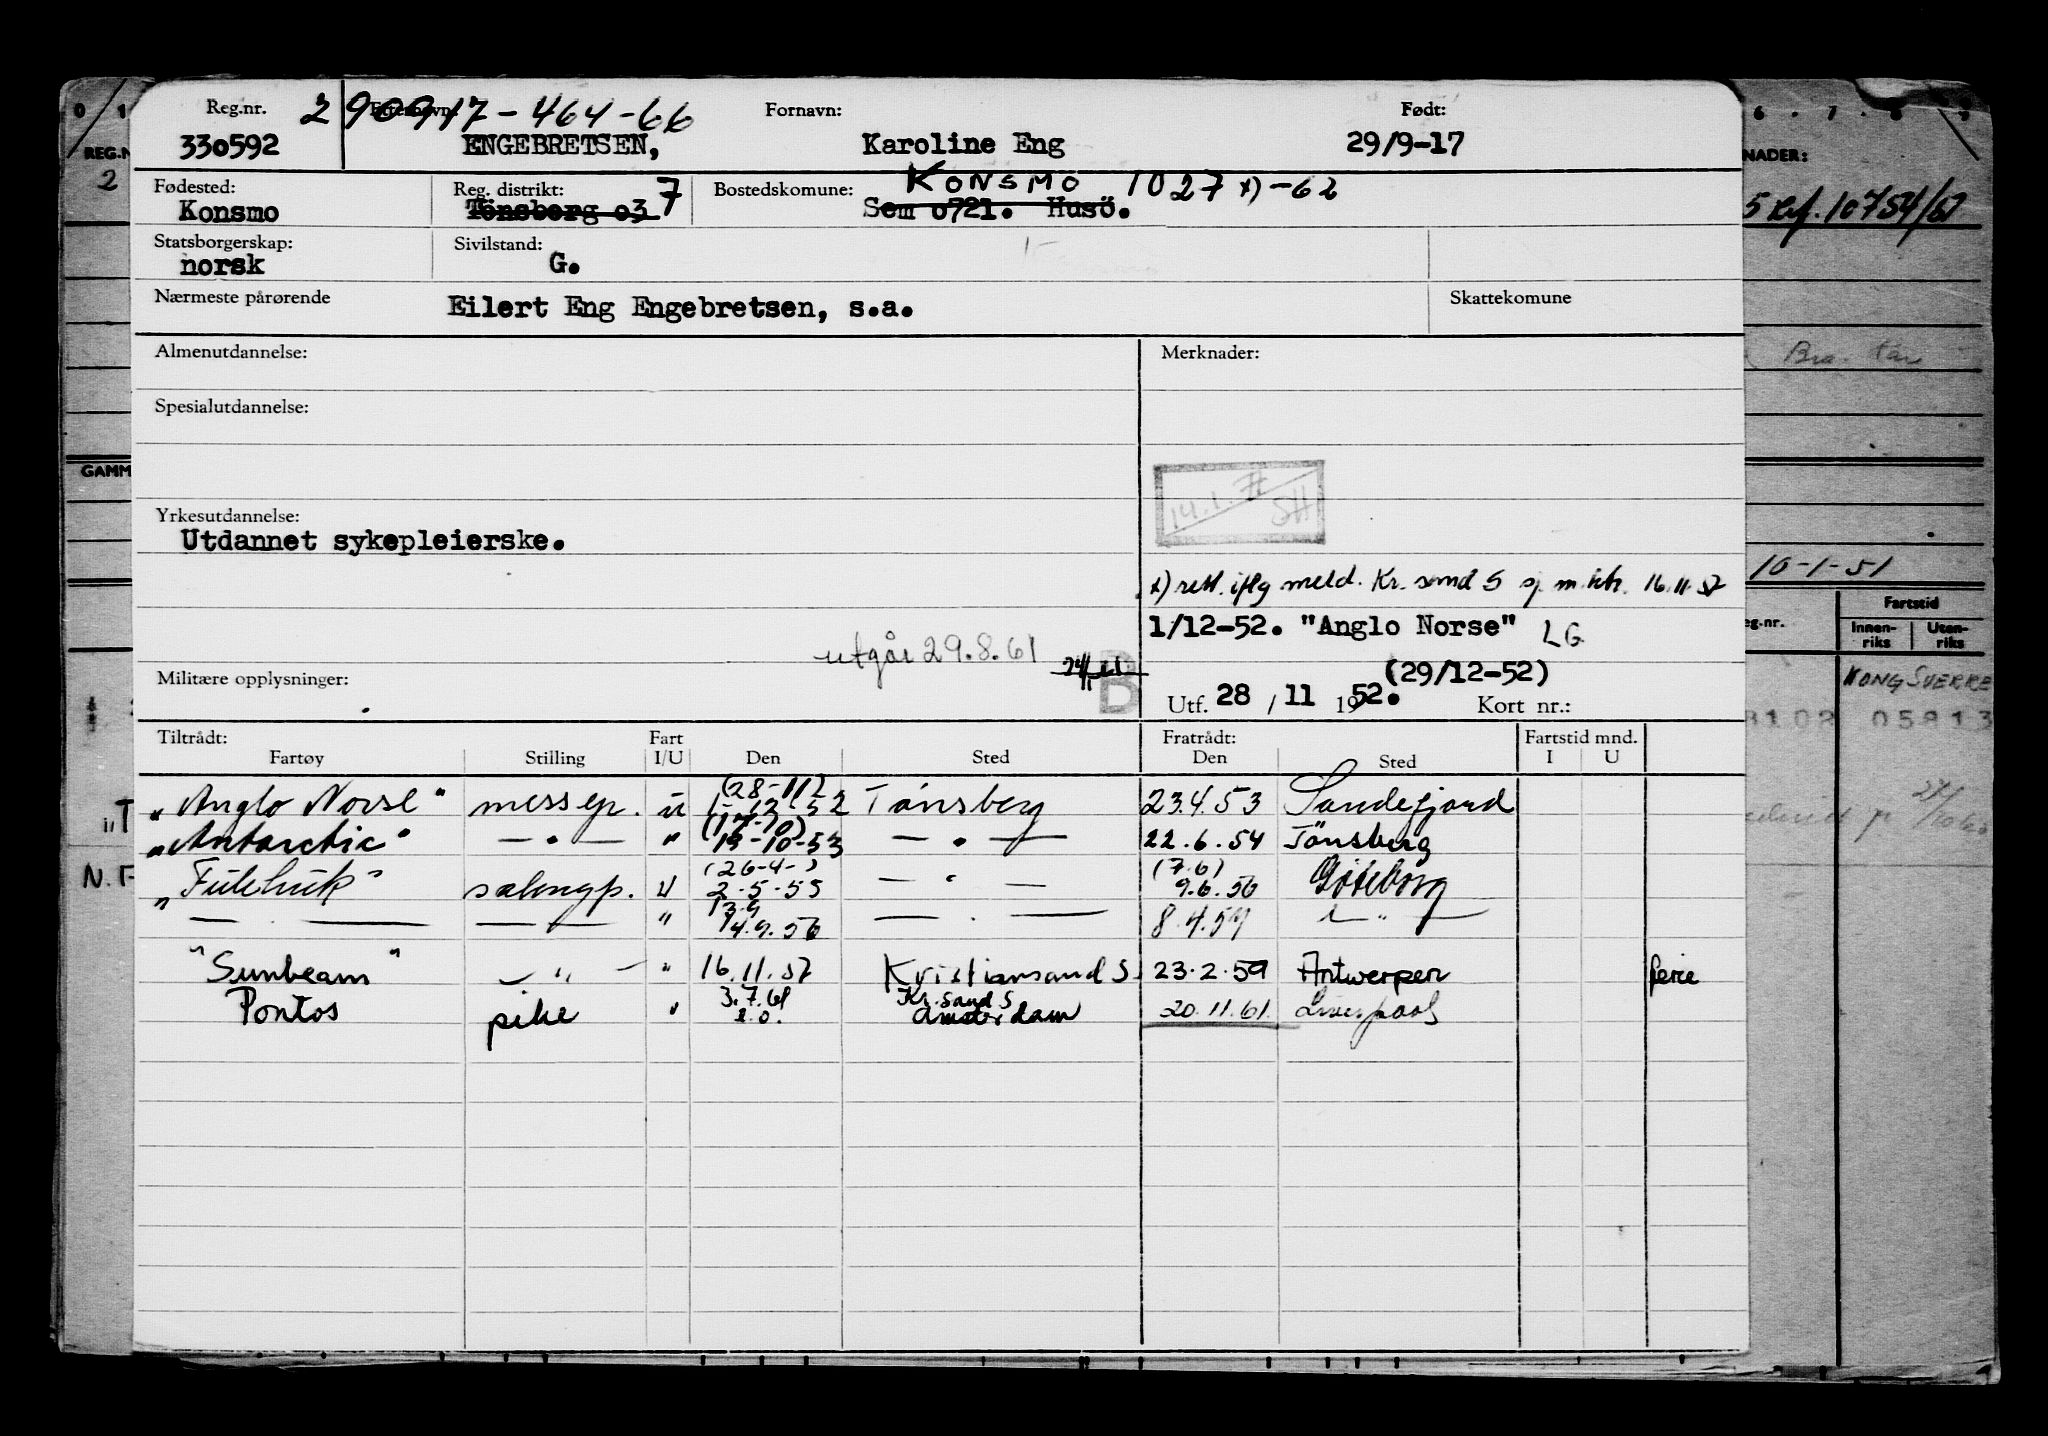 Reg.nr. 290917-464-66 Etternavn: Fornavn: Født:
330592 ENGEBRETSEN, Karoline Eng 29/9-17
Fødested: Reg. distrikt: 7 Bostedskomune: KONSMO 1027 x) -62
Konsmo Tönsberg o3 Sem o721. Husö.
Statsborgerskap: Sivilstand:
norsk G.
Nærmeste pårørende Eilert Eng Engebretsen, s.a. Skattekomune
Almenutdannelse: Merknader:
Spesialutdannelse:
14.1. SH
Yrkesutdannelse:
Utdannet sykepleierske.
x) rett. iflg meld. Kr.sand S 16.11.57
1/12-52. "Anglo Norse" LG
utgår 29.8.61
B
(29/12-52)
Militære opplysninger: Utf. 28 / 11 1952. Kort nr.:
Tiltrådt: Fart Fratrådt: Fartstid mnd.
Fartøy Stilling I/U Den Sted Den Sted I U
"Anglo Norse" messep. u (28-11) 1-12-52 Tönsberg 23.4.53 Sandefjord
"Antarctic" — " — " (17-10) 19-10-53 — " — 22.6.54 Tönsberg
"Fülehuk" salongp. u (26-4-) 2-5-55 — " — (7.6) 9.6.56 Göteborg
— . — — — " 13.9 14.9.56 — . — 8.4.57 — " —
"Sunbeam" — " — " 16.11.57 Kristiansand S. 23.2.59 Antwerpen ferie
Pontos pike " 3.7.61 Kr.sand S 20.11.61. Liverpool
Amsterdam
REG.N
2
GAMM
"T
N.F
NADER:
10754/51
10-1-51
eg.nr. Fartstid
Innen-riks Uten-riks
KONG SVERRE
3102 05813